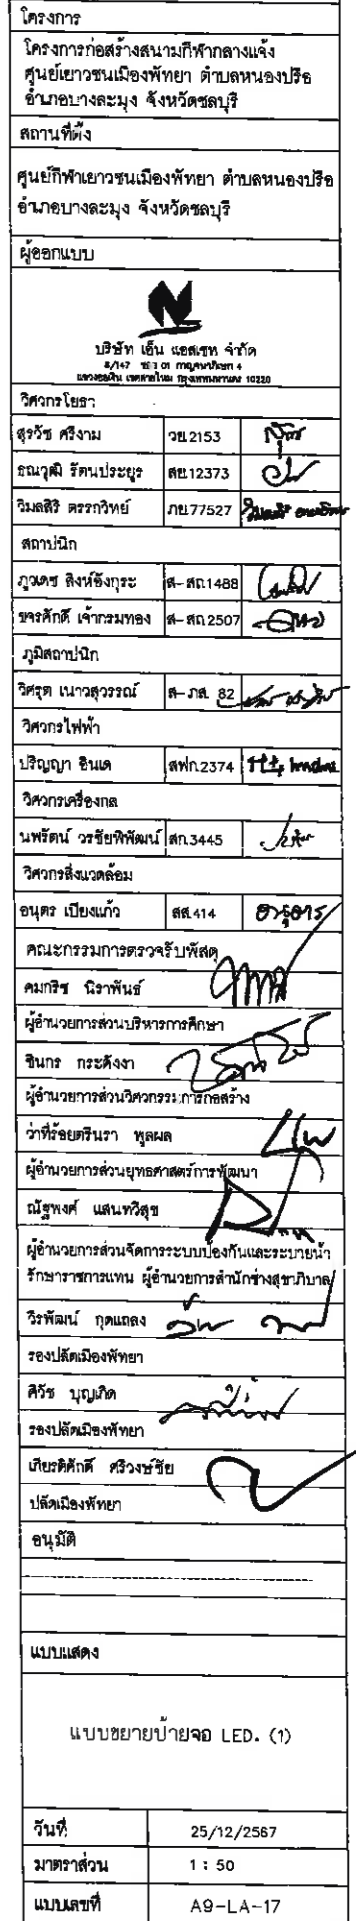 โครงการ
โครงการก่อสร้างสนามกีฬากลางแจ้ง
ศูนย์เยาวชนเมืองพัทยา ตำบลหนองปรือ
อำเภอบางละมุง จังหวัดชลบุรี
สถานที่ตั้ง
ศูนย์กีฬาเยาวชนเมืองพัทยา ตำบลหนองปรือ
อำเภอบางละมุง จังหวัดชลบุรี
ผู้ออกแบบ
บริษัท เอ็น แอสเซท จำกัด
8/147 ซอย 01 กาญจนาภิเษก 4
แขวงออเงิน เขตสายไหม กรุงเทพมหานคร 10220
วิศวกรโยธา
สุรวัช ศรีงาม วย.2153
ธณวุฒิ รัตนประยูร สย.12373
วิมลสิริ ตรรกวิทย์ ภย.77527
สถาปนิก
ภูวเดช สิงห์อังกุระ ส-สถ.1488
ขจรศักดิ์ เจ้ากรมทอง ส-สถ.2507
ภูมิสถาปนิก
วิศรุต เนาวสุวรรณ์ ส-ภส. 82
วิศวกรไฟฟ้า
ปริญญา อินเด สฟก.2374
วิศวกรเครื่องกล
นพรัตน์ วรชัยพิพัฒน์ สก.3445
วิศวกรสิ่งแวดล้อม
อนุตร เปียงแก้ว สส.414
คณะกรรมการตรวจรับพัสดุ
คมกริช นิราพันธ์
ผู้อำนวยการส่วนบริหารการศึกษา
ชินกร กระดังงา
ผู้อำนวยการส่วนวิศวกรรมการก่อสร้าง
ว่าที่ร้อยตรีนรา พูลผล
ผู้อำนวยการส่วนยุทธศาสตร์การพัฒนา
ณัฐพงศ์ แสนทวีสุข
ผู้อำนวยการส่วนจัดการระบบป้องกันและระบายน้ำ
รักษาราชการแทน ผู้อำนวยการสำนักช่างสุขาภิบาล
วีรพัฒน์ กุดแถลง
รองปลัดเมืองพัทยา
ศิวัช บุญเกิด
รองปลัดเมืองพัทยา
เกียรติศักดิ์ ศรีวงษ์ชัย
ปลัดเมืองพัทยา
อนุมัติ
แบบแสดง
แบบขยายป้ายจอ LED. (1)
วันที่ 25/12/2567
มาตราส่วน 1 : 50
แบบเลขที่ A9-LA-17